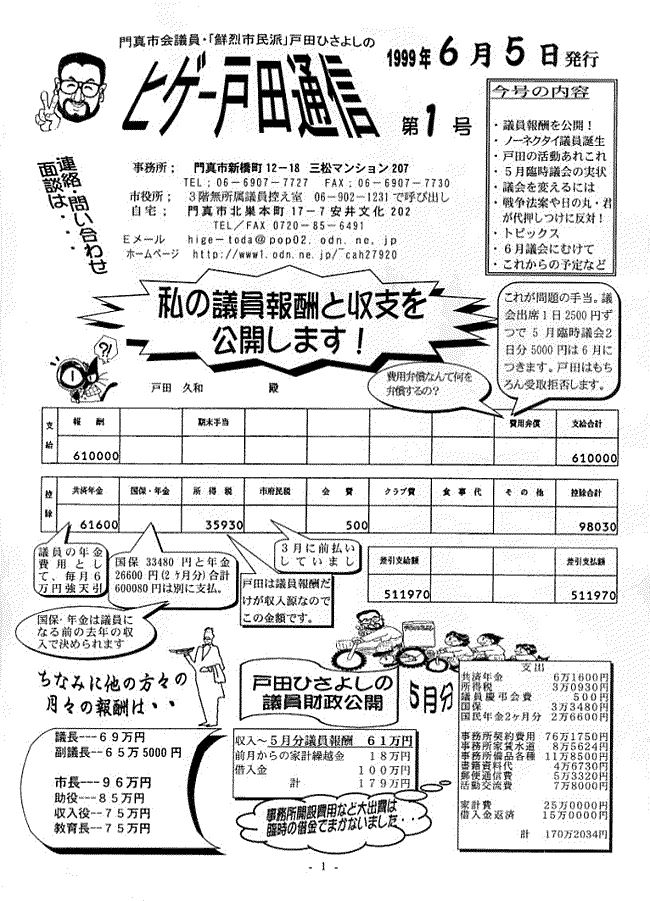 門真市会議員・「鮮烈市民派」戸田ひさよしの
1999年 6月5日発行
ヒゲー戸田通信
第1号
連絡・問い合わせ
面談は・・・
事務所； 門真市新橋町12－18 三松マンション207
TEL；06－6907－7727 FAX；06－6907－7730
市役所； 3階無所属議員控え室 06－902－1231で呼び出し
自宅； 門真市北巣本町17－7安井文化202
TEL／FAX 0720－85－6491
Eメール hige-toda@pop02.odn.ne.jp
ホームページ http://www1.odn.ne.jp/~cah27920
今号の内容
・議員報酬を公開！
・ノーネクタイ議員誕生
・戸田の活動あれこれ
・5月臨時議会の実状
・議会を変えるには
・戦争法案や日の丸・君
が代押しつけに反対！
・トピックス
・6月議会にむけて
・これからの予定など
私の議員報酬と収支を
公開します！
これが問題の手当。議
会出席1日2500円ず
つで5月臨時議会2
日分5000円は6月に
つきます。戸田はもち
ろん受取拒否します。
?!
費用弁償なんて何を
弁償するの？
戸田 久和 殿
支給 報酬 期末手当 費用弁償 支給合計
610000 610000
控除 共済年金 国保・年金 所得税 市府民税 会費 クラブ費 食事代 その他 控除合計
61600 35930 500 98030
差引支給額 差引支払額
511970 511970
議員の年金
費用とし
て、毎月6
万円強天引
国保 33480円と年金
26600円(2ヶ月分)合計
600080円は別に支払。
3月に前払い
していまし
戸田は議員報酬だ
けが収入源なので
この金額です。
国保・年金は議員に
なる前の去年の収
入で決められます
ちなみに他の方々の
月々の報酬は・・
議長---69万円
副議長--65万5000円
市長---96万円
助役---85万円
収入役--75万円
教育長--75万円
戸田ひさよしの
議員財政公開
5月分
収入～5月分議員報酬 61万円
前月からの家計繰越金 18万円
借入金 100万円
計 179万円
事務所開設費用など大出費は
臨時の借金でまかないました・・
支出
共済年金 6万1600円
所得税 3万0930円
議員慶弔会費 500円
国保 3万3480円
国民年金2ヶ月分 2万6600円
事務所契約費用 76万1750円
事務所家賃水道 8万5624円
事務所備品各種 11万8500円
書籍資料代 4万6730円
郵便通信費 5万3320円
活動交流費 7万8000円
家計費 25万0000円
借入金返済 15万0000円
計 170万2034円
- 1 -